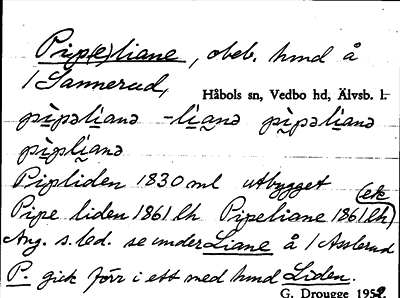 Pip(e)liane, obeb. hmd å
1 Sannerud,
Håbols sn, Vedbo hd, Älvsb. l.
pìpəlianə -lianə pìpəlianə
pìplianə
Pipliden 1830 ml utbygget
Pipe liden 1861 lh Pipeliane 1861 lh (ek
Ang. s. led. se under Liane å 1 Asslerud
P. gick förr i ett med hmd Liden.
G. Drougge 1952.